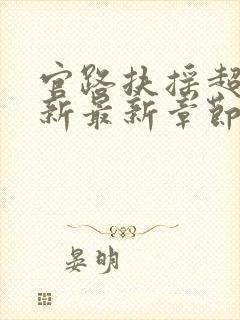 官路扶摇超
新最新章节
晏明